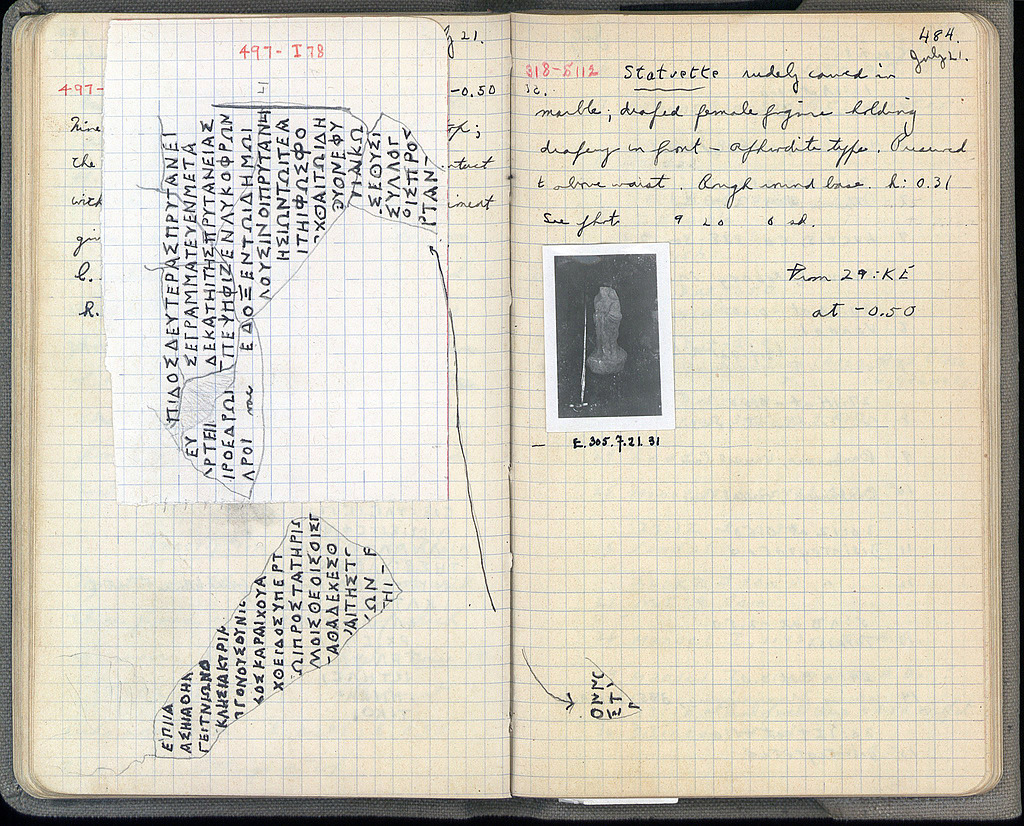 497- I 78
y 21.
497-
-0.50
Nine
the
ntact
with
iment
ΠΙΔΟΣΔΕΥΤΕΡΑΣΠΡΥΤΑΝΕΙ
ΕΥ ΣΕΓΡΑΜΜΑΤΕΥΕΝΜΕΤΑ
ΑΡΤΕΙ ΔΕΚΑΤΗΙΤΗΣΠΡΥΤΑΝΕΙΑΣ
ΙΡΟΕΔΡΩΙ ΠΕΨΗΦΙΖΕΝΛΥΚΟΦΡΩΝ
ΔΡΟΙ vac ΕΔΟΞΕΝΤΩΙΔΗΜΩΙ
ΛΟΥΣΙΝΟΙΠΡΥΤΑΝΗ
ΗΣΙΩΝΤΩΙΤΕΑ
ΙΤΗΙΦΩΣΦΟ
ΧΘΑΙΤΩΙΔΗ
ΟΜΟΝΕΦΥ
ΓΙΑΙΚΩ
ΣΕΘΟΥΣΙ
ΣΥΛΛΟΓ
ΟΙΣΠΡΟΣ
ΡΤΑΝ
ΕΠΙΙΔ
ΑΣΗΙΑΘΗΛ
ΓΕΙΤΝΙΩΝΟ
ΚΛΗΣΙΑΚΥΡΙΑ
ΓΟΝΟΥΣΟΥΝΙΕ
ΔΟΣΚΑΡΑΙΧΟΥΑ
ΧΘΕΙΔΟΣΥΠΕΡΤ
ΩΙΠΡΟΣΤΑΤΗΡΙΩ
ΜΟΙΣΘΕΟΙΣΟΙΣΓ
ΑΘΑΔΕΧΕΣΟ
ΑΙΤΗΣΤ
ΩΝ
ΗΙ
484.
July 21.
818-S112
Statuette rudely carved in
marble; draped female figure holding
drapery in front - Aphrodite type. Preserved
t above waist. Rough round base. h: 0.31
See phot
From 29:KE
at -0.50
E.305.7.21.31